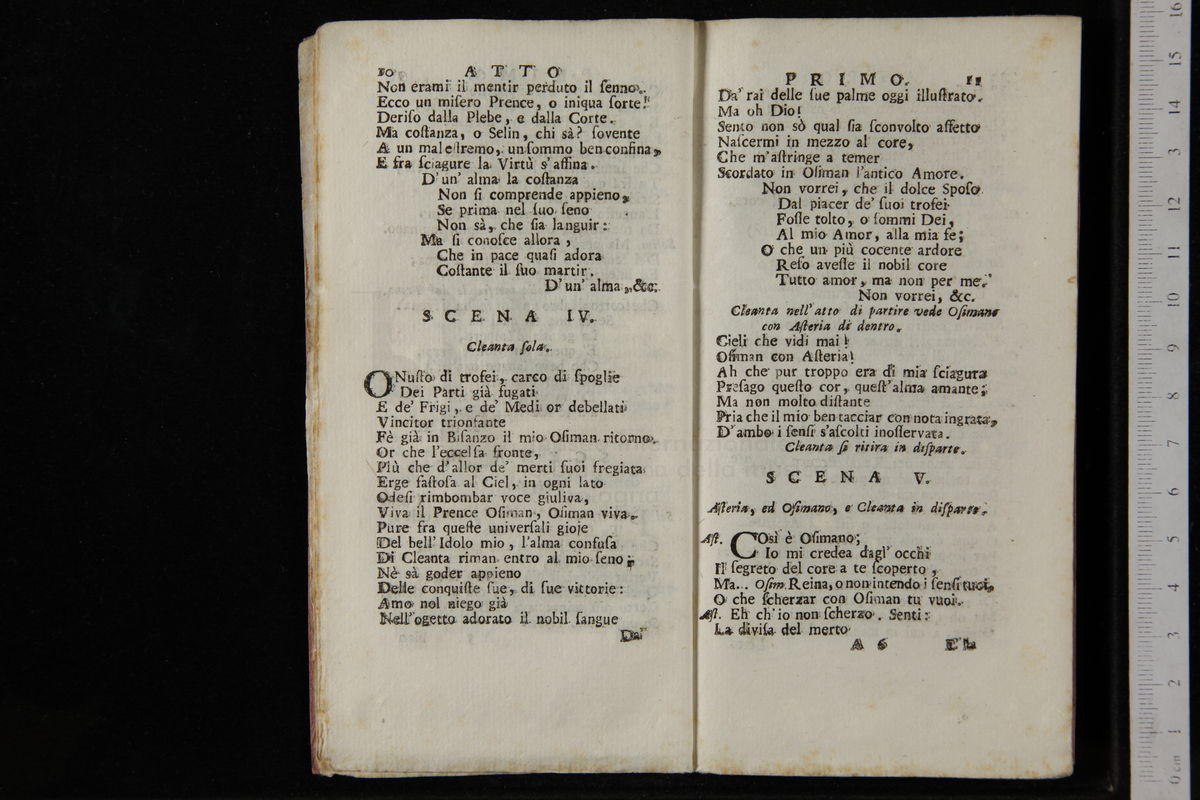 10 ATTO
Non erami il mentir perduto il ſenno.
Ecco un miſero Prence, o iniqua ſorte!
Deriſo dalla Plebe, e dalla Corte.
Ma coſtanza, o Selin, chi sà? ſovente
A un mal eſtremo, un ſommo ben confina,
E fra ſciagure la Virtù s'affina.
D'un' alma la coſtanza
Non ſi comprende appieno,
Se prima nel ſuo ſeno
Non sà, che ſia languir:
Ma ſi conoſce allora,
Che in pace quaſi adora
Coſtante il ſuo martir.
D'un' alma, &c.
SCENA IV.
Cleanta ſola.
ONuſto di trofei, carco di ſpoglie
Dei Parti già fugati
E de' Frigi, e de' Medi or debellati
Vincitor trionfante
Fè già in Biſanzo il mio Oſiman ritorno.
Or che l'eccelſa fronte,
Più che d'allor de' merti ſuoi fregiata
Erge faſtoſa al Ciel, in ogni lato
Odeſi rimbombar voce giuliva,
Viva il Prence Oſiman, Oſiman viva.
Pure fra queſte univerſali gioje
Del bell' Idolo mio, l'alma confuſa
Di Cleanta riman entro al mio ſeno;
Nè sà goder appieno
Delle conquiſte ſue, di ſue vittorie:
Amo nol niego già
Nell'ogetto adorato il nobil ſangue
Da'
PRIMO. 11
Da' rai delle ſue palme oggi illuſtrato.
Ma oh Dio!
Sento non sò qual ſia ſconvolto affetto
Naſcermi in mezzo al core,
Che m'aſtringe a temer
Scordato in Oſiman l'antico Amore.
Non vorrei, che il dolce Spoſo
Dal piacer de' ſuoi trofei
Foſſe tolto, o ſommi Dei,
Al mio Amor, alla mia fe;
O che un più cocente ardore
Reſo aveſſe il nobil core
Tutto amor, ma non per me.
Non vorrei, &c.
Cleanta nell'atto di partire vede Oſimano
con Aſteria di dentro.
Cieli che vidi mai!
Oſiman con Aſteria!
Ah che pur troppo era di mia ſciagura
Preſago queſto cor, queſt'alma amante;
Ma non molto diſtante
Pria che il mio ben tacciar con nota ingrata,
D'ambo i ſenſi s'aſcolti inoſſervata.
Cleanta ſi ritira in diſparte.
SCENA V.
Aſteria, ed Oſimano, e Cleanta in diſparte.
Aſt. COsì è Oſimano;
Io mi credea dagl' occhi
Il ſegreto del core a te ſcoperto,
Ma... Oſim. Reina, o non intendo i ſenſi tuoi,
O che ſcherzar con Oſiman tu vuoi.
Aſt. Eh ch'io non ſcherzo. Senti:
La diviſa del merto
A 6 E'la